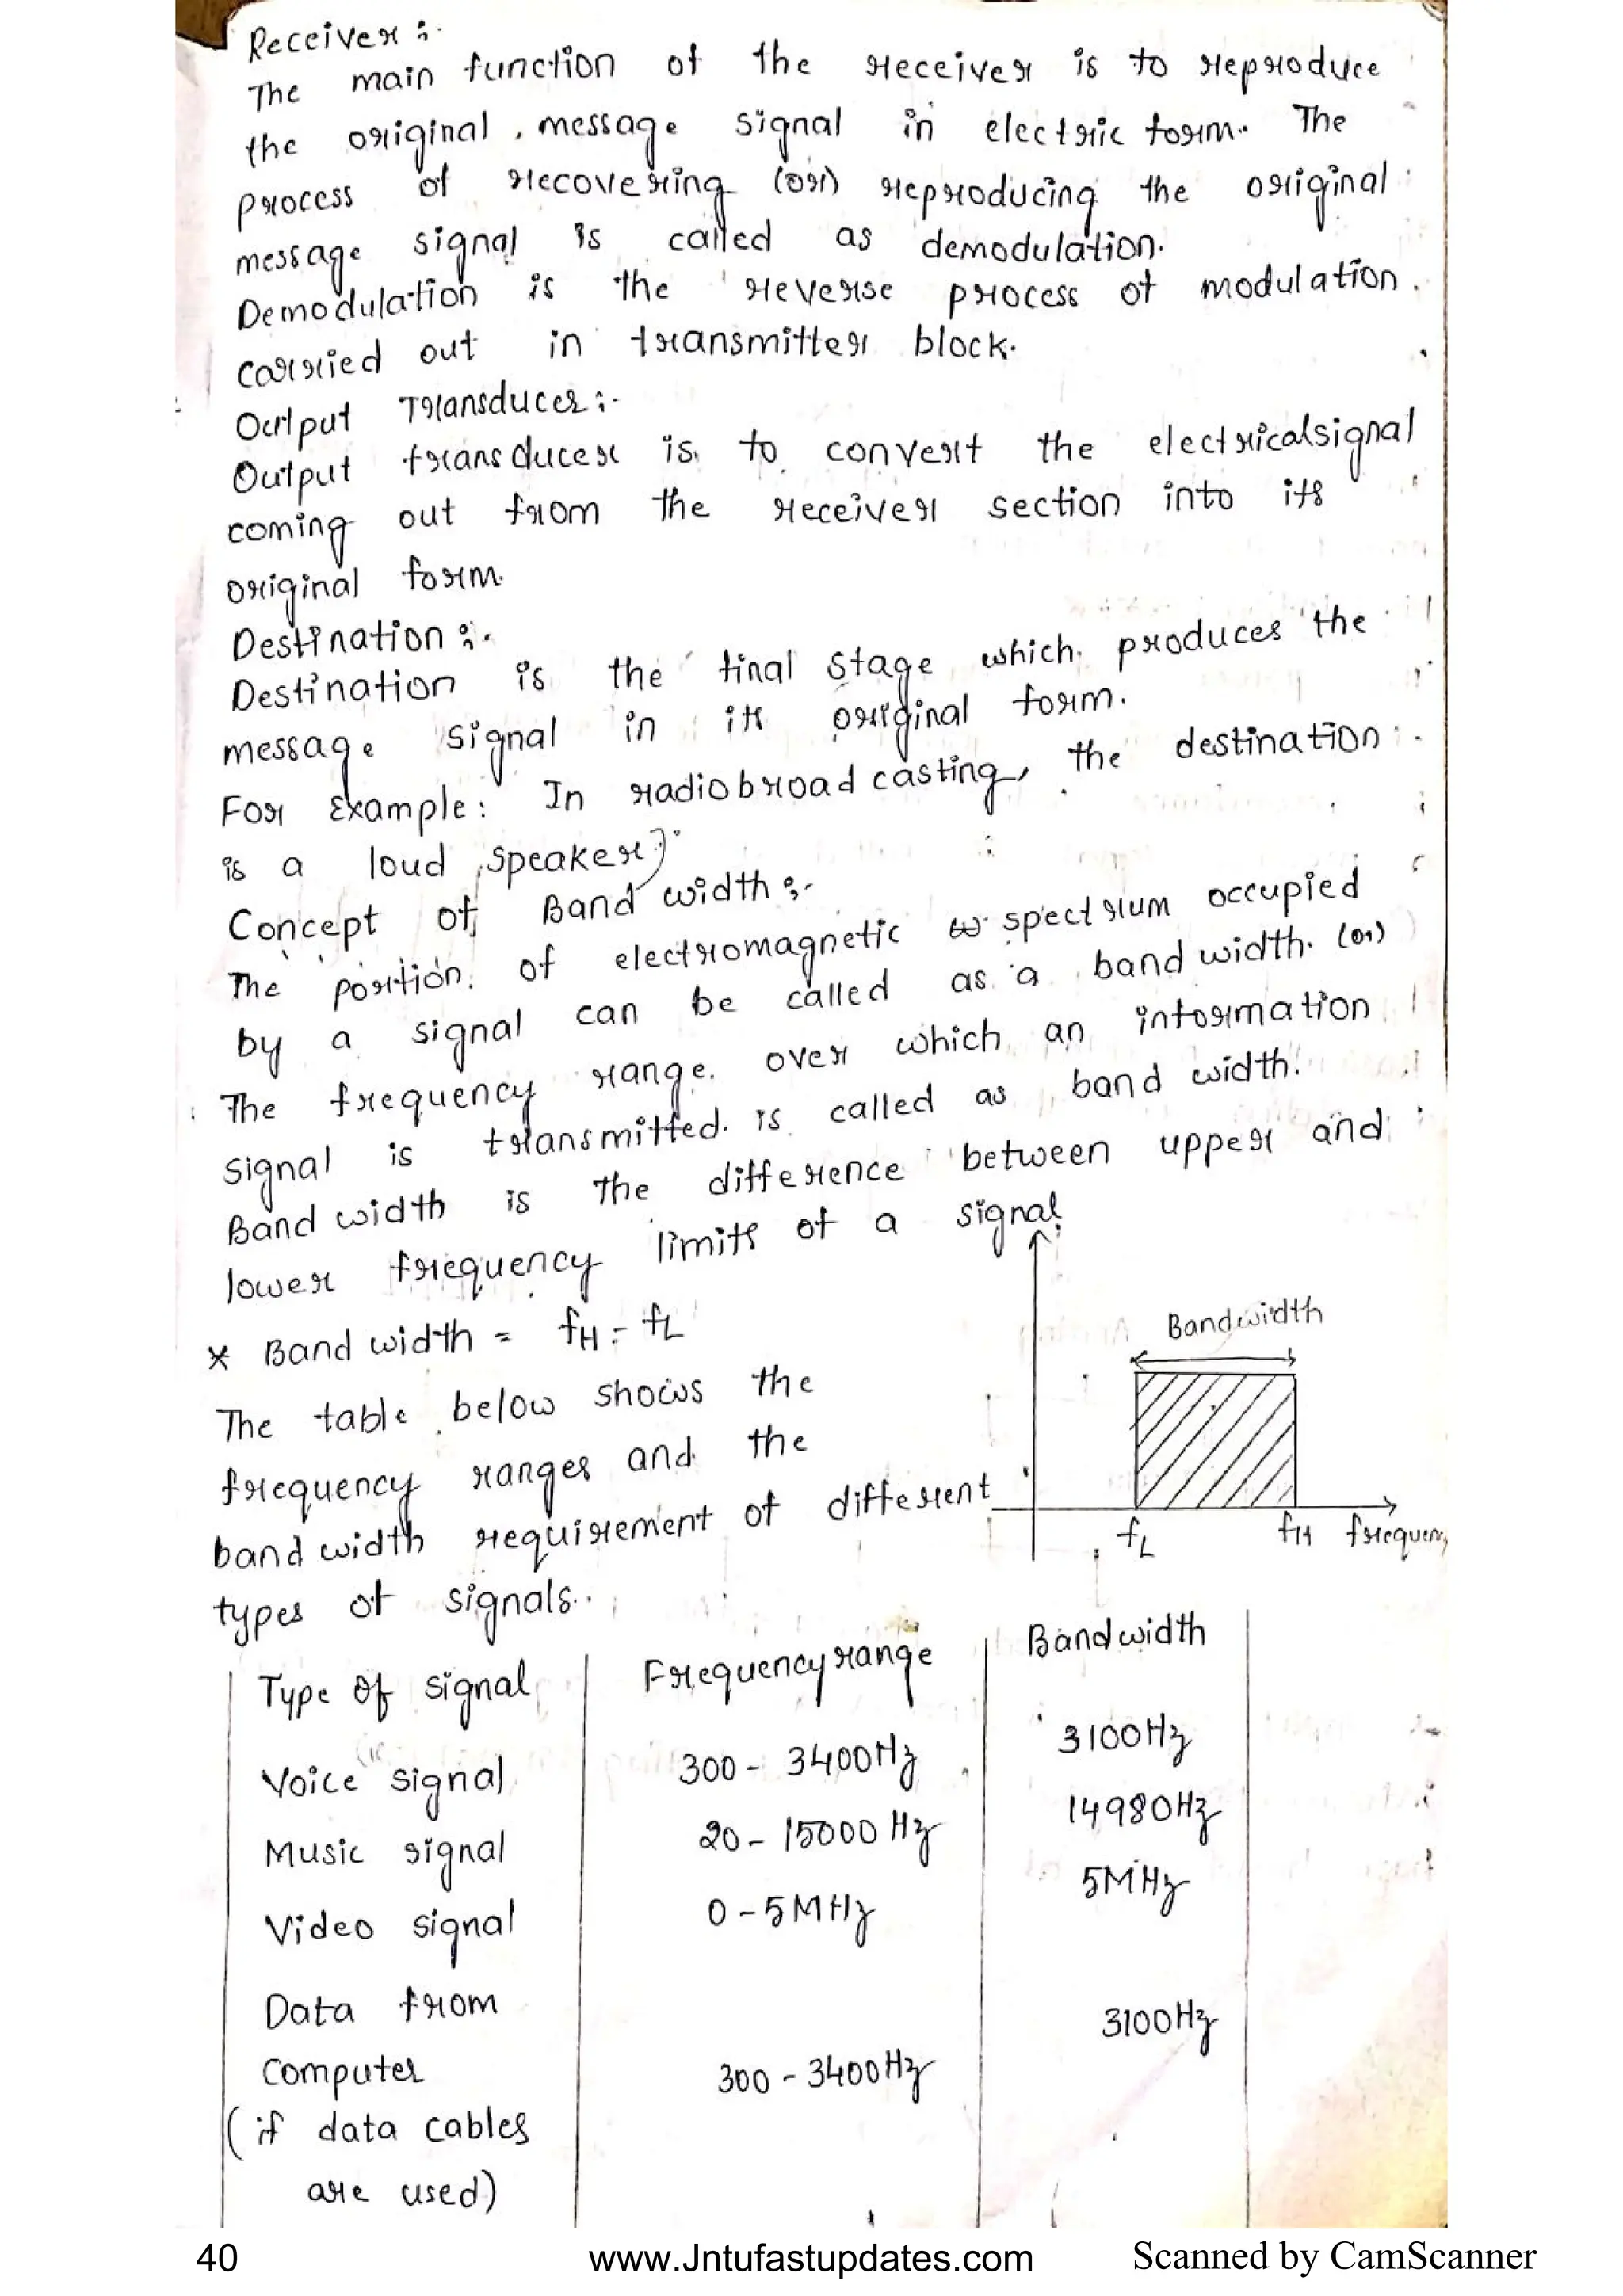 Receiver :-
The main function of the receiver is to reproduce
the original message signal in electric form. The
process of recovering (or) reproducing the original
message signal is called as demodulation.
Demodulation is the reverse process of modulation
carried out in transmitter block.
Output Transducer :-
Output transducer is to convert the electricalsignal
coming out from the receiver section into its
original form.
Destination :-
Destination is the final stage which produces the
message signal in its original form.
For Example: In radiobroadcasting, the destination
is a loud speaker).
Concept of Band width :-
The portion of electromagnetic spectrum occupied
by a signal can be called as a band width. (or)
The frequency range over which an information
signal is transmitted is called as band width.
Band width is the difference between upper and
lower frequency limits of a signal.
* Band width = fH - fL
The table below shows the
frequency ranges and the
band width requirement of different
types of signals.
Bandwidth
fL fH frequen
Type Of signal Frequency range Bandwidth
Voice signal 300 - 3400Hz 3100Hz
Music signal 20 - 15000 Hz 14980Hz
Video signal 0 - 5MHz 5MHz
Data from
Computer 300 - 3400Hz 3100Hz
(if data cables
are used)
40 www.Jntufastupdates.com Scanned by CamScanner